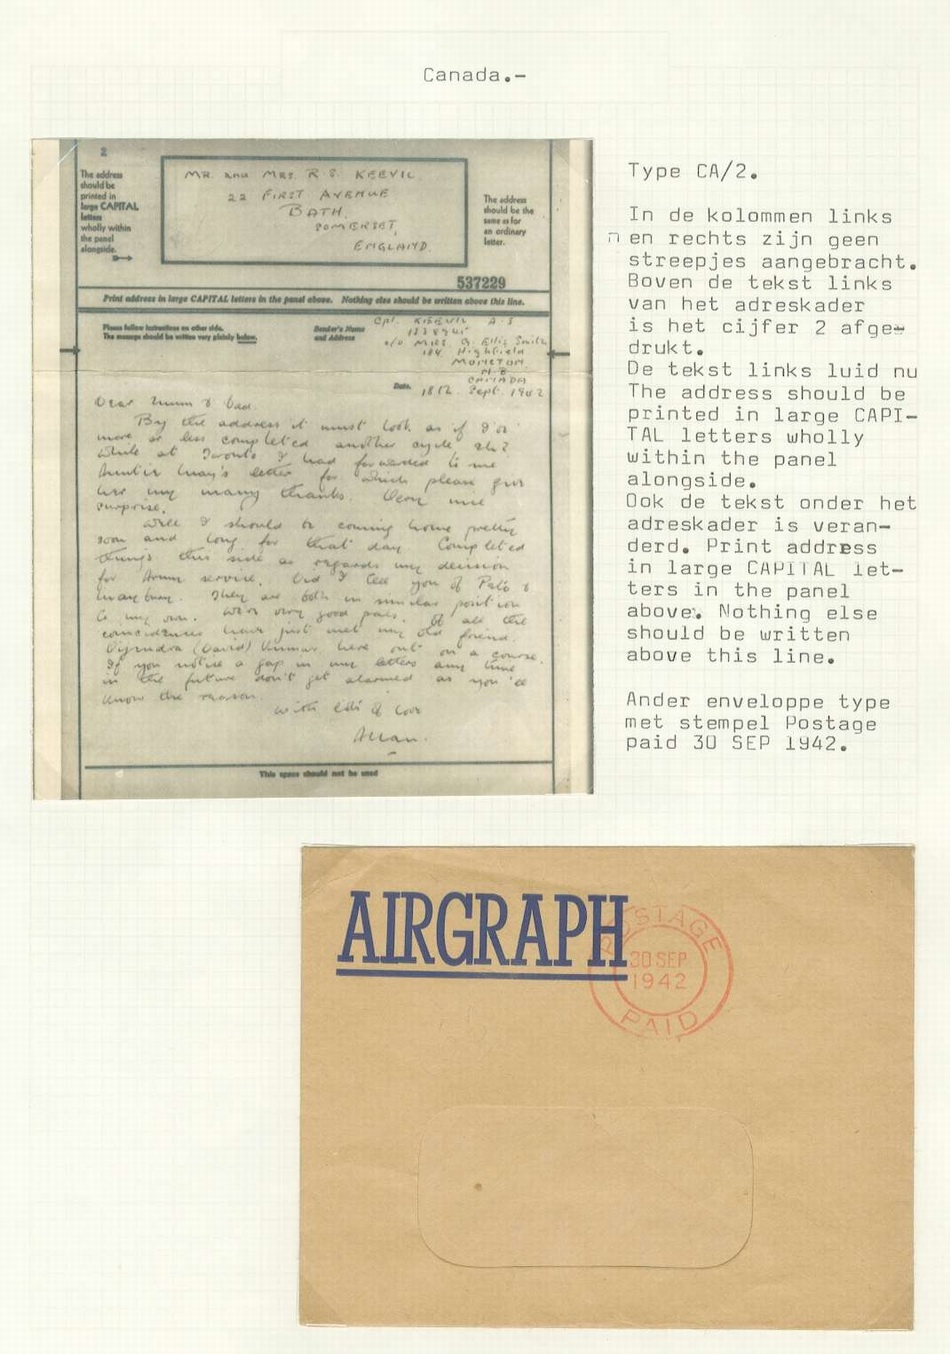 Canada.-
2
The address
should be
printed in
large CAPITAL
letters
wholly within
the panel
alongside.
MR. AND MRS. R S. KEEVIL.
22 FIRST AVENUE
BATH.
SOMERSET,
ENGLAND.
The address
should be the
same as for
an ordinary
letter.
537229
Print address in large CAPITAL letters in the panel above. Nothing else should be written above this line.
Please follow instructions on other side.
The message should be written very plainly below.
Sender's Name
and Address
Cpl. KEEVIL A.S
c/o MRS. G. Ellis Smith
184 Highfield
MONCTON
N-B
CANADA
Date.
18th. Sept. 1942
Dear Mum & Dad.
By the address it must look as if I've
more or less completed another cycle
while at Toronto I had forwarded to me
Auntie May's letter for which please give
her my many thanks. Very nice
surprise.
Well I should be coming home pretty
soon and long for that day Completed
things this side as regards my decision
for Army service. Did I tell you of Pat's &
They are both in similar position
to my own. We're very good pals. Of all the
coincidences have just met my old friend.
(David) Kumar here out on a course.
If you notice a gap in my letters any time
in the future don't get alarmed as you'll
know the reason.
with lots of love
Allan.
This space should not be used
Type CA/2.
In de kolommen links
en rechts zijn geen
streepjes aangebracht.
Boven de tekst links
van het adreskader
is het cijfer 2 afge-
drukt.
De tekst links luid nu
The address should be
printed in large CAPI-
TAL letters wholly
within the panel
alongside.
Ook de tekst onder het
adreskader is veran-
derd. Print address
in large CAPITAL let-
ters in the panel
above. Nothing else
should be written
above this line.
Ander enveloppe type
met stempel Postage
paid 30 SEP 1942.
AIRGRAPH
POSTAGE
30 SEP
1942
PAID